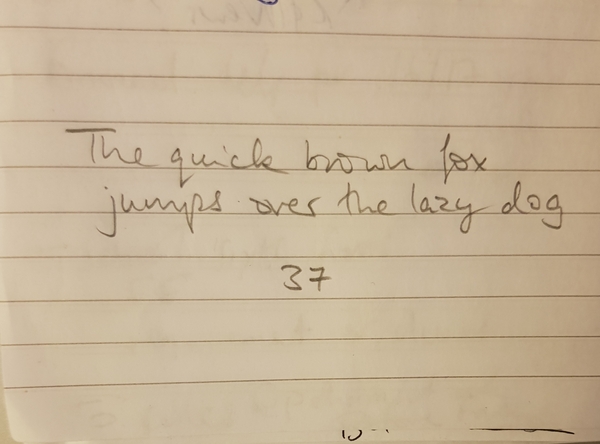 The quick brown fox
jumps over the lazy dog
37